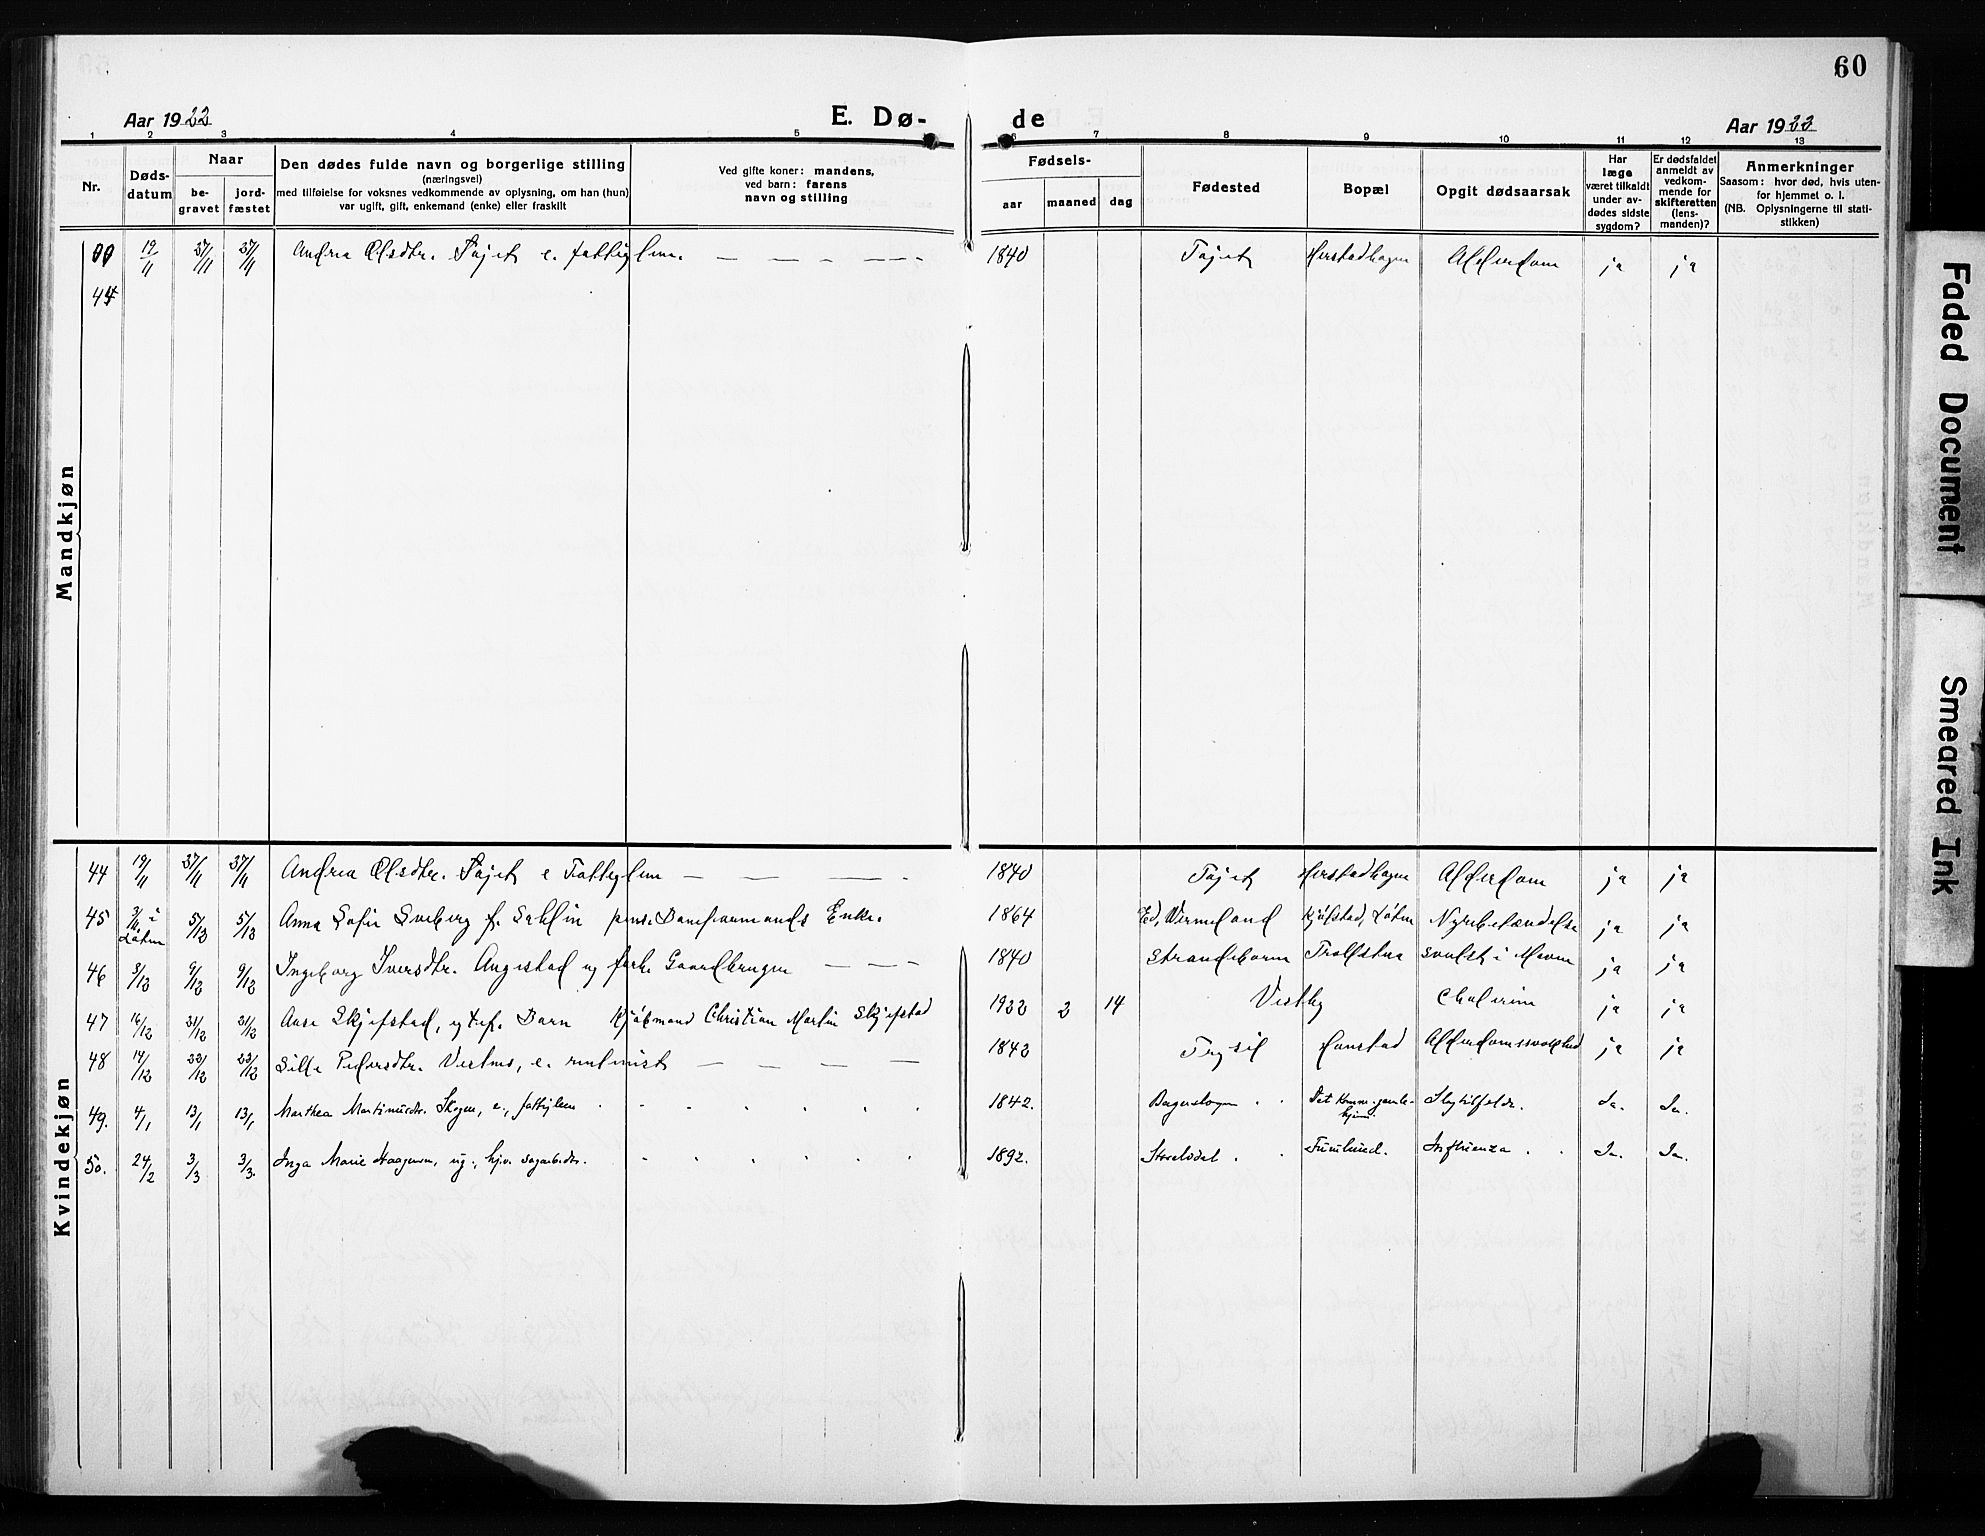 60
Aar 1922
E. Dø-
de
Aar 1922
1 2 3 4 5 6 7 8 9 10 11 12 13
Nr.
Døds-
datum
Naar
be-
gravet
jord-
fæstet
Den dødes fulde navn og borgerlige stilling
(næringsvei)
med tilføielse for voksnes vedkommende av oplysning, om han (hun)
var ugift, gift, enkemand (enke) eller fraskilt
Ved gifte koner: mandens,
ved barn: farens
navn og stilling
Fødsels-
aar maaned dag
Fødested
Bopæl
Opgit dødsaarsak
Har
læge
været tilkaldt
under av-
dødes sidste
sygdom?
Er dødsfaldet
anmeldt av
vedkom-
mende for
skifteretten
(lens-
manden)?
Anmerkninger
Saasom: hvor død, hvis uten-
for hjemmet o. l.
(NB. Oplysningerne til stati-
stikken)
Mandkjøn
19/11 27/11 27/11 Andrea Olsdtr. Tajet e. fattiglem. 1840 Tajet Herstadhagen Alderdom ja ja
44
Kvindekjøn
44 19/11 27/11 27/11 Andrea Olsdtr. Tajet e Fattiglem 1840 Tajet Herstadhagen Alderdom ja ja
45 i Løten 5/12 5/12 Anna Sofie Sveberg f. Sahlin pens. Baneformands Enke. 1864 Ed, Vermeland Kjøfstad, Løten Nyrebetændelse ja ja
46 3/12 9/12 9/12 Ingeborg Iversdtr. Angestad ug fork. Gaardbruger 1840 Strandeborm Trolfstua svulst i Maven ja ja
47 16/12 21/12 21/12 Aase Skjefstad, egtef. Barn Kjøbmand Christian Martin Skjefstad 1922 2 14 Vestby Cholerine ja ja
48 14/12 22/12 22/12 Sille Pedersdtr. Vestmo, e. rentenist 1842 Trysil Hanstad Alderdomssvakhed ja ja
49. 4/1 13/1 13/1 Marthea Martinusdtr. Skogen, e., fattiglem 1842. Det komm. gamle-
hjem. Slagtilfelde. Ja. Ja.
50. 24/2 3/3 3/3. Inga Marie Haagensen, ug., hjv. sagarbeider. 1892. Storelvdal Influenza Ja. Ja.
Faded Document
Smeared Ink